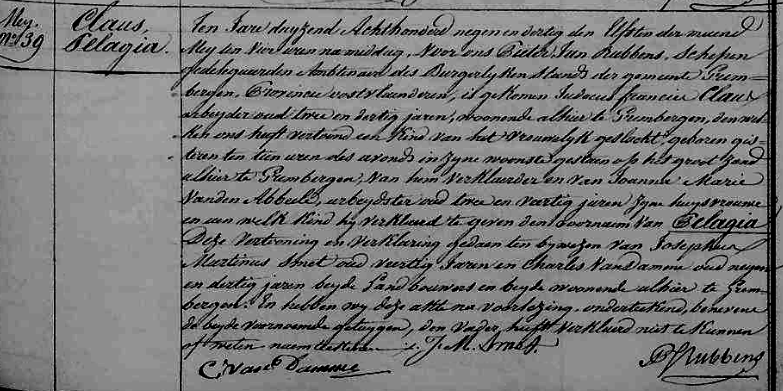 Mey.
N° 39
Claus,
Pelagia.
Ten Jare duyzend Achthonderd negen en dertig den Elfsten der maend
Mey ten Vier uren namiddag, Voor ons Pieter Jan Rubbens, Schepen
gedelegueerden Ambtenaer des Burgerlyken Stands der gemeente Grem=
bergen, Provincie oostvlaenderen, is gekomen Judocus francies Claus
arbeyder oud twee en dertig jaren, woonende alhier te Grembergen, den wel=
ken ons heeft vertoond een Kind van het Vrouwelyk geslacht, geboren gis=
teren ten tien uren des avonds in zyne woonste gestaen op het groot zand
alhier te Grembergen, Van hem Verklaerder en van Joanna Marie
Vanden Abbeele, arbeydster oud twee en vartig jaren zyne huysvrouwe
en aen welk Kind hy Verklaerd te geven den voornaem Van Pelagia
Deze Vertooning en Verklaring gedaen ten bywezen van Josephus
Martinus Smet oud veertig Jaren en Charles Vandamme oud negen
en dertig jaren beyde Landbouwers en beyde woonende alhier te Grem=
bergen. En hebben wy deze akte na voorlezing, onderteekend, benevens
de beyde voornoemde getuygen, den Vader, heeft Verklaerd niet te Kunnen
of weten naemteekenen. J. M. Smet.
C. Van Damme
PJ Rubbens